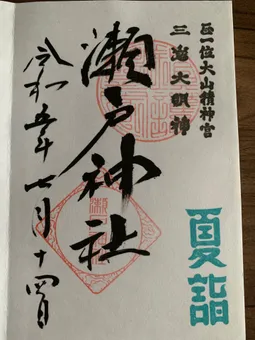 正一位大山積神宮
三島大明神
瀬戸神社
令和五年七月十四日
夏詣